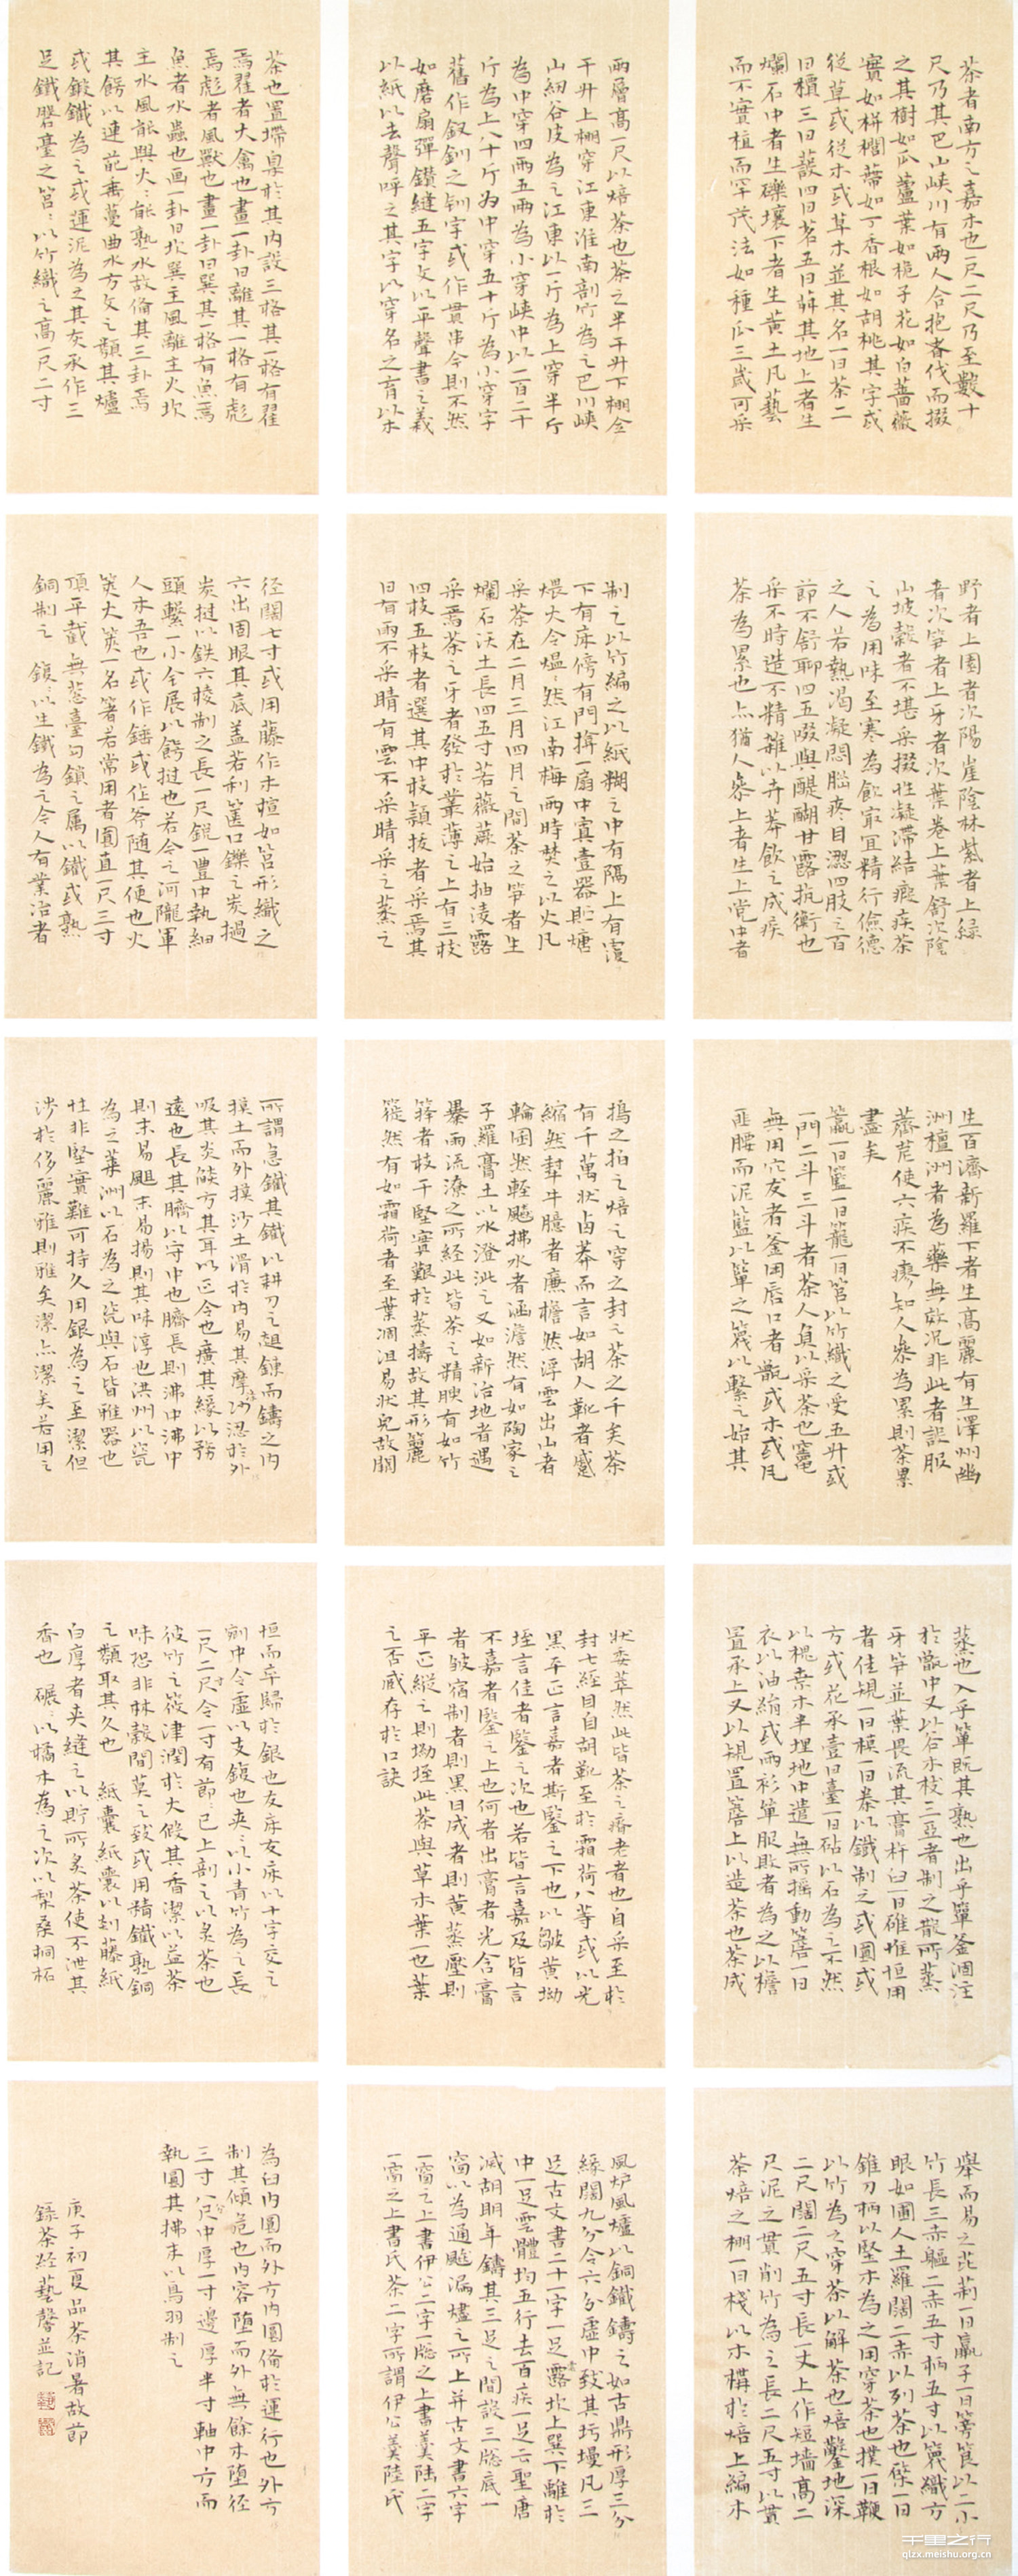 茶者南方之嘉木也一尺二尺乃至數十
尺乃其巴山峽川有兩人合抱者伐而掇
之其樹如瓜蘆葉如梔子花如白薔薇
實如栟櫚蒂如丁香根如胡桃其字或
從草或從木或草木並其名一曰茶二
曰檟三曰蔎四曰茗五曰荈其地上者生
爛石中者生礫壤下者生黃土凡藝
而不實植而罕茂法如種瓜三歲可采
野者上園者次陽崖陰林紫者上緑
者次笋者上牙者次葉卷上葉舒次陰
山坡穀者不堪采掇性凝滯結瘕疾茶
之為用味至寒為飲最宜精行儉德
之人若熱渴凝悶腦疼目澀四肢之百
節不舒聊四五啜與醍醐甘露抗衡也
采不時造不精雜以卉莽飲之成疾
茶為累也亦猶人參上者生上党中者
生百濟新羅下者生高麗有生澤州幽
洲檀洲者為藥無效况非此者設服
薺苨使六疾不瘳知人參為累則茶累
盡矣
籯一曰籃一曰籠一曰筥以竹織之受五升或
一門二斗三斗者茶人負以采茶也竈
無用穴友者釜用唇口者甑或木或凡
匪腰而泥籃以箄之篾以繫之始其
蒸也入乎箄既其熟也出乎箄釜涸注
於甑中又以谷木枝三亞者制之散所蒸
牙笋並葉畏流其膏杵臼一曰碓堆恒用
者佳規一曰模曰棬以鐵制之或圓或
方或花承壹曰臺一曰砧以石為之不然
以槐桒木半埋地中遣無所摇動簷一曰
衣以油絹或雨衫箄服敗者為之以檐
置承上又以規置簷上以造茶也茶成
舉而易之芘莉一曰羸子一曰篣筤以二小
竹長三赤軀二赤五寸柄五寸以篾織方
眼如圃人土羅闊二赤以列茶也棨一曰
錐刀柄以堅木為之用穿茶也撲一曰鞭
以竹為之穿茶以解茶也焙鑿地深
二尺闊二尺五寸長一丈上作短墻高二
尺泥之貫削竹為之長二尺五寸以貫
茶焙之棚一曰棧以木構於焙上編木
兩層高一尺以焙茶也茶之半干升下棚全
干升上棚穿江東淮南剖竹為之巴川峽
山紉谷皮為之江東以一斤為上穿半斤
為中穿四兩五兩為小穿峽中以一百二十
斤為上八十斤為中穿五十斤為小穿字
舊作釵釧之釧字或作貫串今則不然
如磨扇彈鑽縫五字文以平聲書之義
以紙以去聲呼之其字以穿名之育以木
制之以竹編之以紙糊之中有隔上有覆
下有床傍有門揜一扇中寘壹器貯塘
煨火令熅ミ然江南梅雨時焚之以火凡
采茶在二月三月四月之間茶之笋者生
爛石沃土長四五寸若薇蕨始抽淩露
采焉茶之牙者發於叢薄之上有三枝
四枝五枝者選其中枝穎拔者采焉其
日有雨不采晴有雲不采晴采之蒸之
搗之拍之焙之穿之封之茶之千矣茶
有千萬状卤莽而言如胡人靴者蹙
縮然犎牛臆者廉檐然浮雲出山者
輪囷然輕飈拂水者涵澹然有如陶家之
子羅膏土以水澄泚之又如新治地者遇
暴雨流潦之所経此皆茶之精腴有如竹
籜者枝干堅實艱於蒸擣故其形籭
簁然有如霜荷者至葉凋沮易状皃故厥
狀委萃然此皆茶之瘠老者也自采至於
封七經目自胡靴至於霜荷八等或以光
黑平正言嘉者斯鑒之下也以皺黄坳
垤言佳者鑒之次也若皆言嘉及皆言
不嘉者鑒之上也何者出膏者光含膏
者皺宿制者則黑日成者則黄蒸壓則
平正縱之則坳垤此茶與草木葉一也葉
之否臧存於口訣
風炉風爐以銅鐵鑄之如古鼎形厚三分
緣闊九分令六分虚中致其圬墁凡三
足古文書二十一字一足坎上巽下離於
中一足雲體均五行去百疾一足云聖唐
滅胡明年鑄其三足之間設三牕底一
窗以為通飈漏燼之所上并古文書六字
一窗之上書伊公二字一牕之上書羹陸二字
一窗之上書氏茶二字所謂伊公羹陸氏
茶也置墆㙞於其内設三格其一格有翟
焉翟者火禽也畫一卦曰離其一格有彪
焉彪者風獸也畫一卦曰巽其一格有魚焉
魚者水蟲也画一卦曰坎巽主風離主火坎
主水風能興火ミ能熟水故俻其三卦焉
其餝以連葩垂蔓曲水方文之類其爐
或鍛鐵為之或運泥為之其灰承作三
足鐵柈臺之筥ミ以竹織之高一尺二寸
径闊七寸或用藤作木楦如筥形織之
六出固眼其底盖若利篋口鑠之炭撾
炭撾以鉄六棱制之長一尺鋭一豊中執細
頭繫一小全展以餝撾也若今之河隴軍
人木吾也或作錘或作斧随其便也火
筴火筴一名箸若常用者圓直一尺三寸
頂平截無葱臺勾鎖之属以鐵或熟
銅制之 鍑ミ以生鐵為之今人有業治者
所謂急鐵其鐵以耕刀之趄鍊而鑄之内
摸土而外摸沙土滑於内易其摩沙澀於外
吸其炎燄方其耳以正令也廣其緣以務
遠也長其臍以守中也臍長則沸中沸中
則末易飈末易揚則其味淳也洪州以瓷
為之萊洲以石為之瓷與石皆雅器也
性非堅實難可持久用銀為之至潔但
涉於侈麗雅則雅矣潔亦潔矣若用之
恒而卒歸於銀也友床友床以十字交之
剜中令虚以支鍑也夹ミ以小青竹為之長
一尺二尺令一寸有節ミ已上剖之以炙茶也
彼竹之筱津潤於火假其香潔以益茶
味恐非林榖間莫之致或用精鐵熟銅
之類取其久也 紙囊紙囊以剡藤紙
白厚者夹縫之以貯所炙茶使不泄其
香也 碾ミ以橘木為之次以梨桑桐柘
為臼内圓而外方内圓俻於運行也外方
制其傾危也内容墮而外無餘木墮径
三寸八尺中厚一寸邊厚半寸軸中方而
執圓其拂末以鳥羽制之
庚子初夏品茶消暑故節
録茶經藝馨並記
千里之行
qlzx.meishu.org.cn